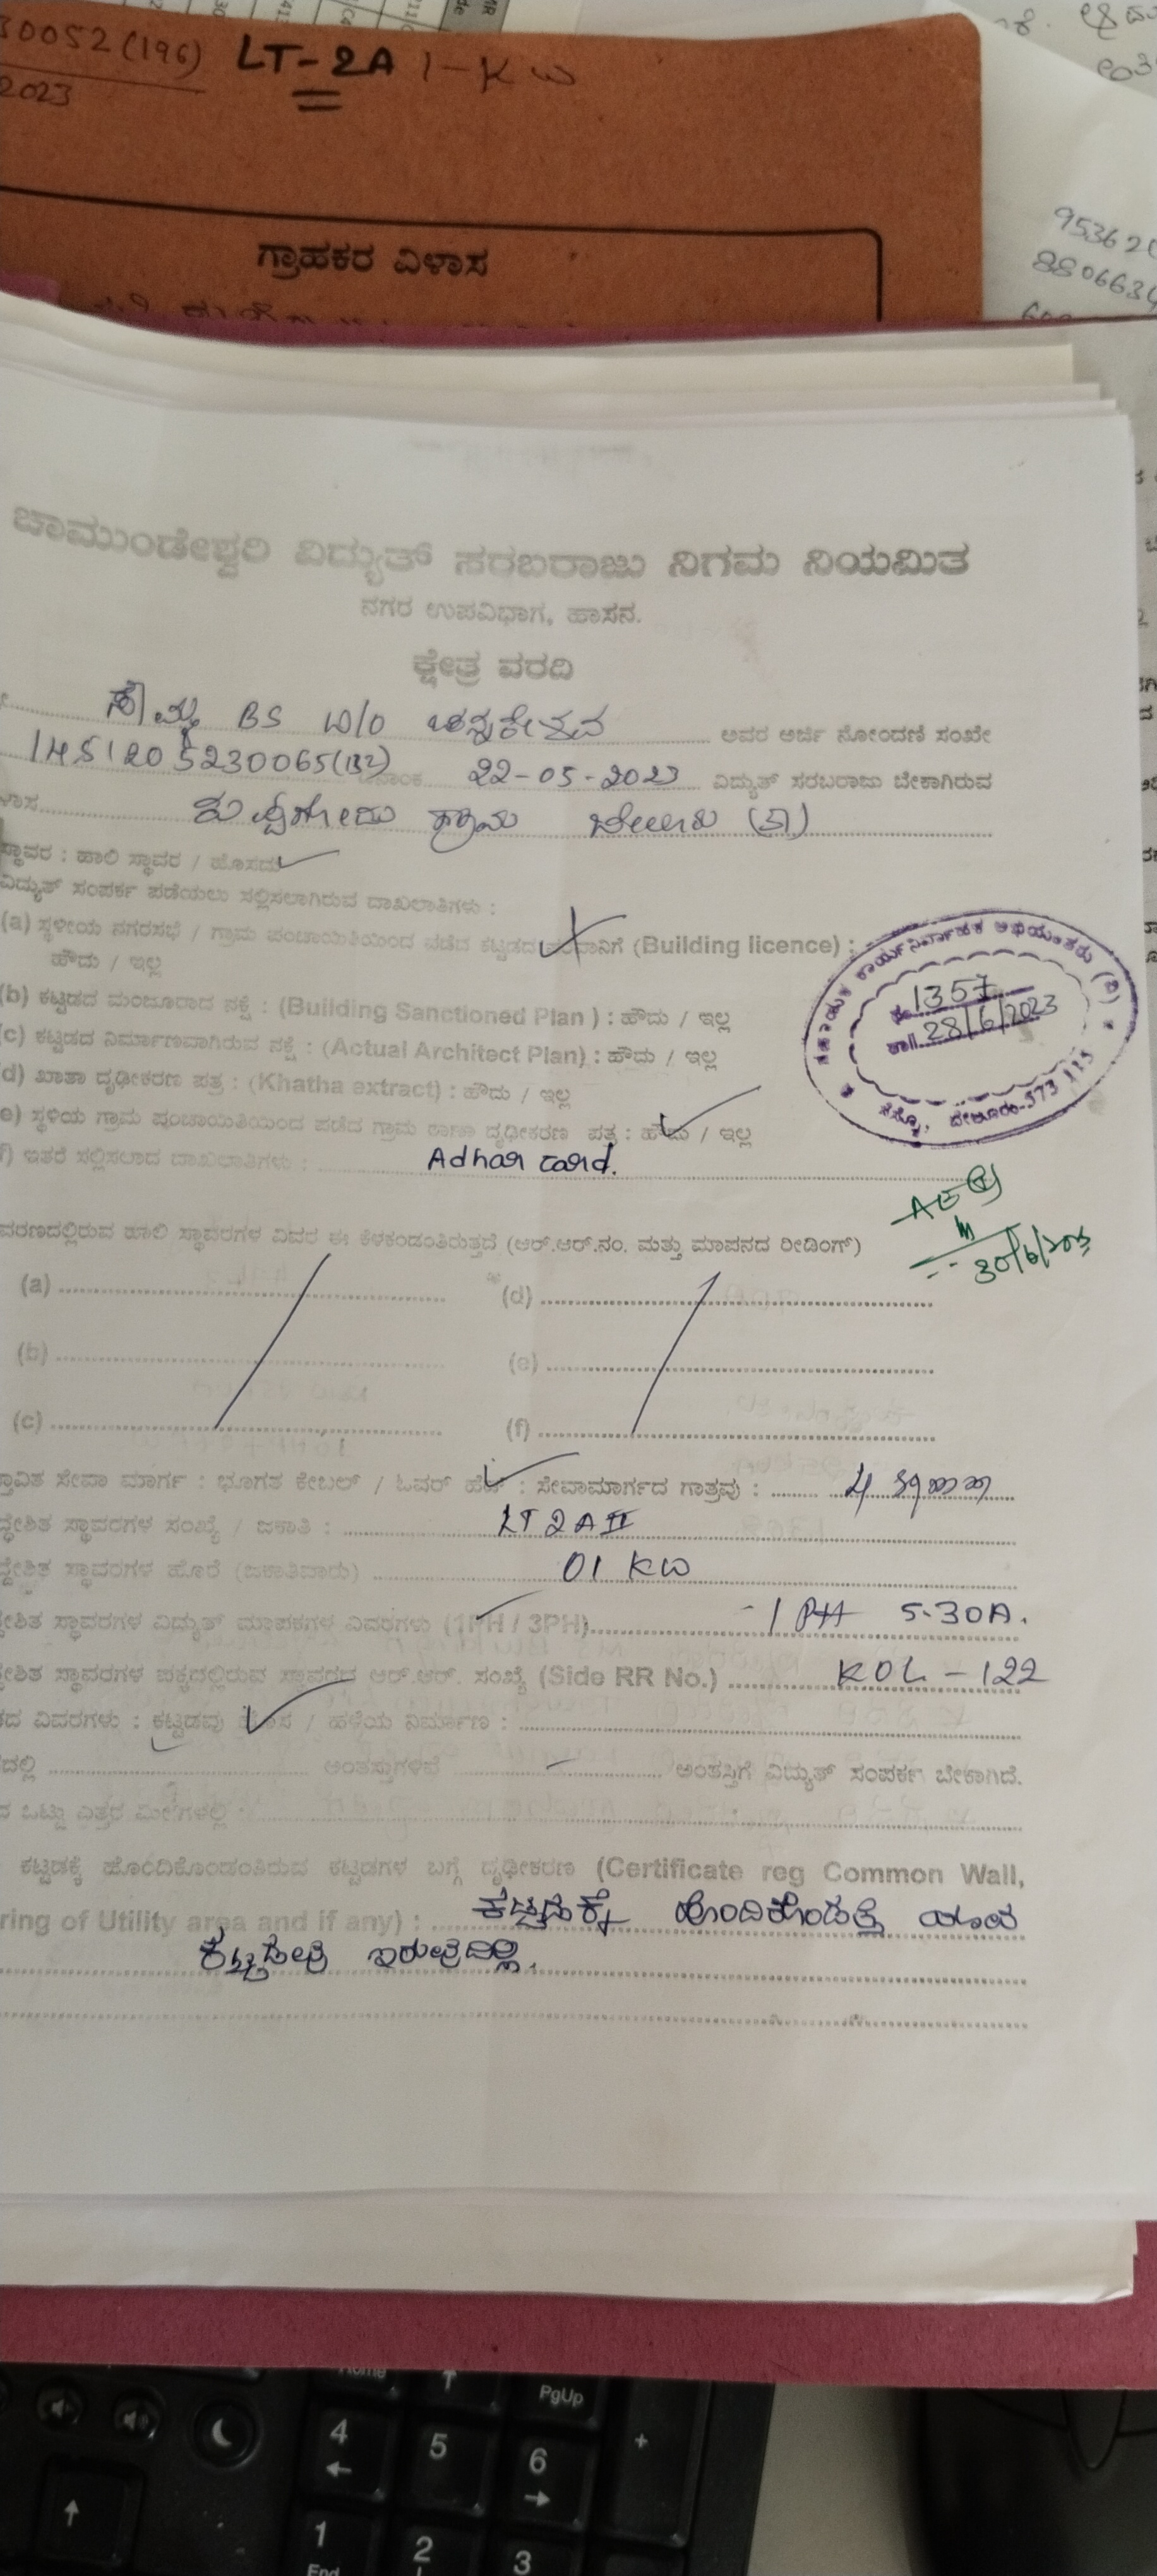 30052(196) LT-2A 1-KW
2023
ಗ್ರಾಹಕರ ವಿಳಾಸ
95362
8806634
ಚಾಮುಂಡೇಶ್ವರಿ ವಿದ್ಯುತ್ ಸರಬರಾಜು ನಿಗಮ ನಿಯಮಿತ
ನಗರ ಉಪವಿಭಾಗ, ಹಾಸನ.
ಕ್ಷೇತ್ರ ವರದಿ
ಸೌಮ್ಯ BS W/O ಚನ್ನಕೇಶವ ಅವರ ಅರ್ಜಿ ನೋಂದಣಿ ಸಂಖೇ
1451205230065(132) ನಾಂಕ 22-05-2023 ವಿದ್ಯುತ್ ಸರಬರಾಜು ಬೇಕಾಗಿರುವ
ಳಾಸ ಗ್ರಾಮ ಬೇಲೂರು (ತಾ)
ಸ್ಥಾವರ : ಹಾಲಿ ಸ್ಥಾವರ / ಹೊಸದು
ವಿದ್ಯುತ್ ಸಂಪರ್ಕ ಪಡೆಯಲು ಸಲ್ಲಿಸಲಾಗಿರುವ ದಾಖಲಾತಿಗಳು :
(a) ಸ್ಥಳೀಯ ನಗರಸಭೆ / ಗ್ರಾಮ ಪಂಚಾಯಿತಿಯಿಂದ ಪಡೆದ ಕಟ್ಟಡದ ಪರವಾನಿಗೆ (Building licence) :
ಹೌದು / ಇಲ್ಲ
(b) ಕಟ್ಟಡದ ಮಂಜೂರಾದ ನಕ್ಷೆ : (Building Sanctioned Plan ) : ಹೌದು / ಇಲ್ಲ
(c) ಕಟ್ಟಡದ ನಿರ್ಮಾಣವಾಗಿರುವ ನಕ್ಷೆ : (Actual Architect Plan) : ಹೌದು / ಇಲ್ಲ
(d) ಖಾತಾ ದೃಢೀಕರಣ ಪತ್ರ : (Khatha extract) : ಹೌದು / ಇಲ್ಲ
e) ಸ್ಥಳೀಯ ಗ್ರಾಮ ಪಂಚಾಯಿತಿಯಿಂದ ಪಡೆದ ಗ್ರಾಮ ಠಾಣಾ ದೃಢೀಕರಣ ಪತ್ರ : ಹೌದು / ಇಲ್ಲ
f) ಇತರೆ ಸಲ್ಲಿಸಲಾದ ದಾಖಲಾತಿಗಳು : Adhar card.
ಸಹಾಯಕ ಕಾರ್ಯನಿರ್ವಾಹಕ ಅಭಿಯಂತರರು (ವಿ)
ಸಂ 1357
ದಿನಾಂಕ 28/6/2023
ಸೆಸ್ಕ್, ಬೇಲೂರು-573 115
30/6/2023
ವರಣದಲ್ಲಿರುವ ಹಾಲಿ ಸ್ಥಾವರಗಳ ವಿವರ ಈ ಕೆಳಕಂಡಂತಿರುತ್ತದೆ (ಆರ್.ಆರ್.ನಂ. ಮತ್ತು ಮಾಪನದ ರೀಡಿಂಗ್)
(a) (d)
(b) (e)
(c) (f)
ಸ್ತಾವಿತ ಸೇವಾ ಮಾರ್ಗ : ಭೂಗತ ಕೇಬಲ್ / ಓವರ್ ಹೆಡ್ : ಸೇವಾಮಾರ್ಗದ ಗಾತ್ರವು : 4
ದ್ದೇಶಿತ ಸ್ಥಾವರಗಳ ಸಂಖ್ಯೆ / ಜಕಾತಿ : LT 2A II
ದ್ದೇಶಿತ ಸ್ಥಾವರಗಳ ಹೊರೆ (ಜಕಾತಿವಾರು) 01 KW
ದೇಶಿತ ಸ್ಥಾವರಗಳ ವಿದ್ಯುತ್ ಮಾಪಕಗಳ ವಿವರಗಳು (1PH / 3PH) 1 PH 5-30A.
ದೇಶಿತ ಸ್ಥಾವರಗಳ ಪಕ್ಕದಲ್ಲಿರುವ ಸ್ಥಾವರದ ಆರ್.ಆರ್. ಸಂಖ್ಯೆ (Side RR No.) KOL-122
ದ ವಿವರಗಳು : ಕಟ್ಟಡವು ಹೊಸ / ಹಳೆಯ ನಿರ್ಮಾಣ :
ದಲ್ಲಿ ಅಂತಸ್ತುಗಳಿವೆ ಅಂತಸ್ತಿಗೆ ವಿದ್ಯುತ್ ಸಂಪರ್ಕ ಬೇಕಾಗಿದೆ.
ದ ಒಟ್ಟು ಎತ್ತರ ಮೀಗಳಲ್ಲಿ :
ಕಟ್ಟಡಕ್ಕೆ ಹೊಂದಿಕೊಂಡಂತಿರುವ ಕಟ್ಟಡಗಳ ಬಗ್ಗೆ ದೃಢೀಕರಣ (Certificate reg Common Wall,
ring of Utility area and if any) : ಕಟ್ಟಡಕ್ಕೆ ಹೊಂದಿಕೊಂಡಂತೆ ಯಾವ
ಕಟ್ಟಡವು ಇರುವುದಿಲ್ಲ.
Home PgUp
4 5 6 +
1 2 3
End